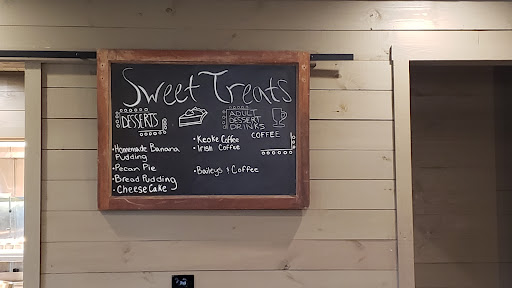 Sweet Treats
DESSERTS
•Homemade Banana
Pudding
•Pecan Pie
•Bread Pudding
•Cheese Cake
ADULT
DESSERT
DRINKS
COFFEE
•Keoke Coffee
•Irish Coffee
•Baileys & Coffee